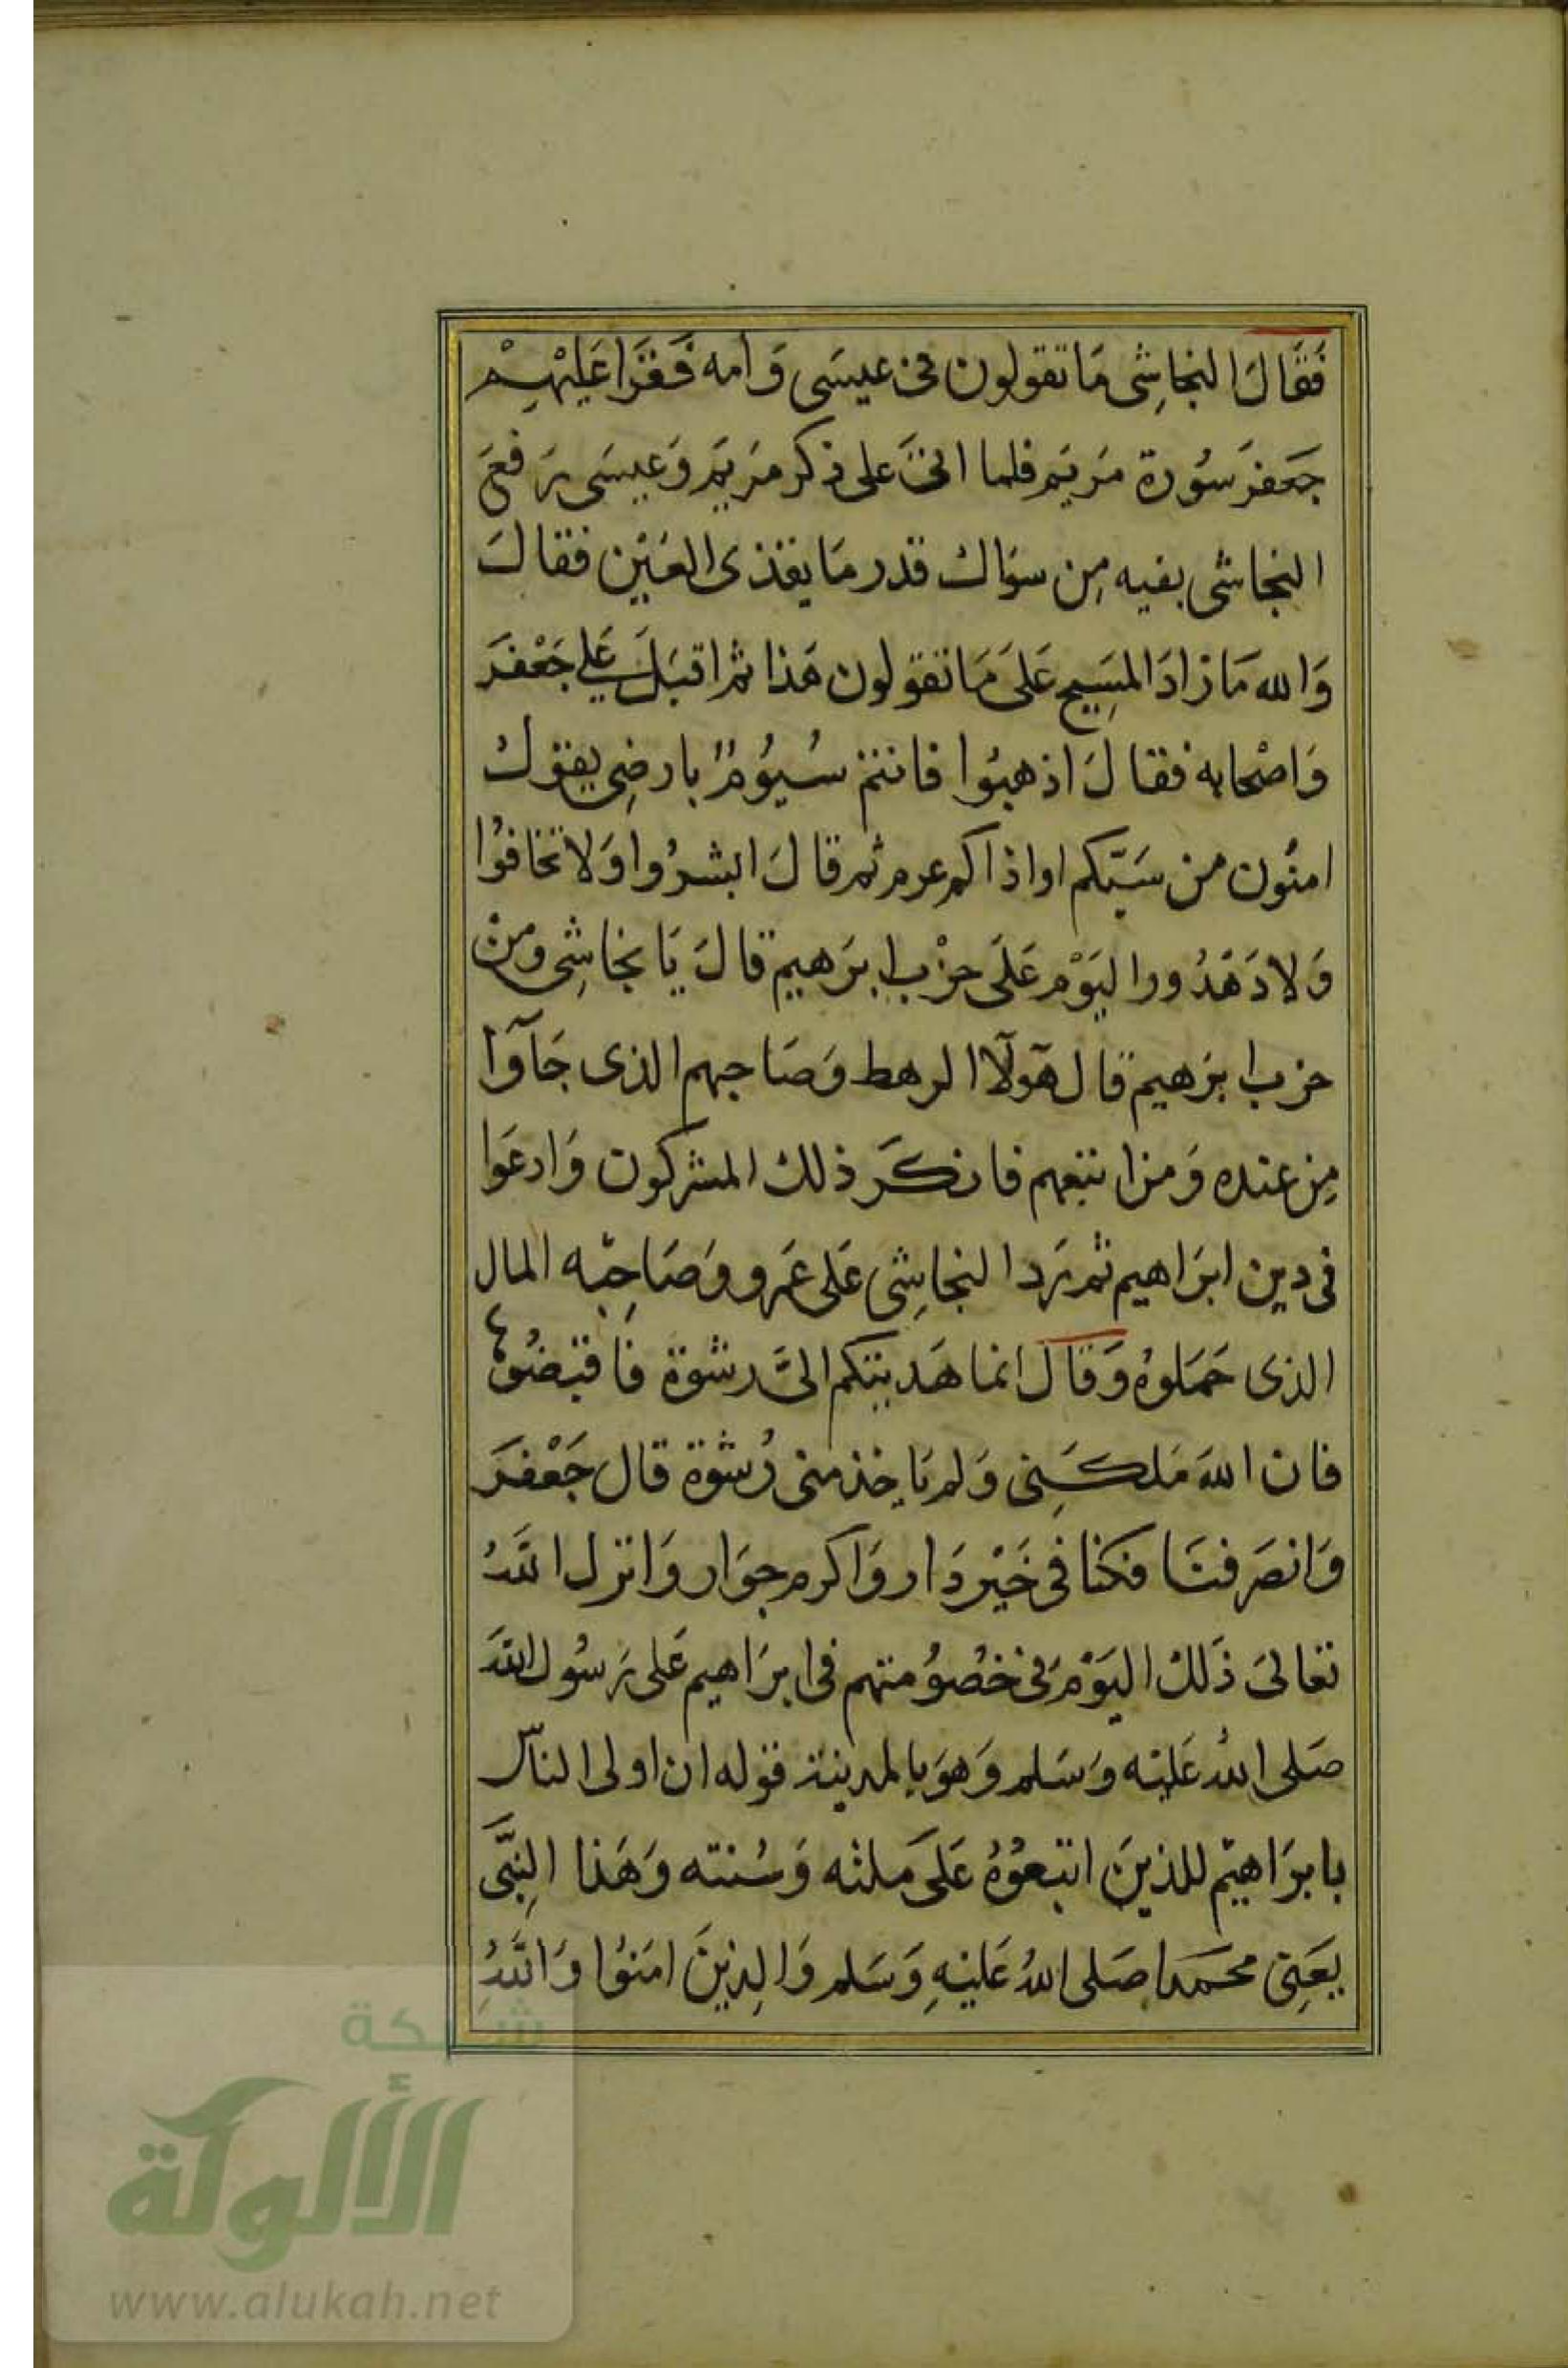 فَقَالَ النجاشِى مَا تقولون فى عيسَى وَامه فَقَرَا عَلَيْهِمْ
جَعفرَ سُورة مَريَم فلما اتىَ على ذكر مَريَم وَعيسَى رَفعَ
النجاشى بفيه مِن سوَاك قدر مَا يقذى العَيْن فقالَ
وَالله مَا زادَ المسَيِح عَلىَ مَا تقولون هَذا ثم اقبَلَ عَلى جَعْفرَ
وَاصْحابه فقالَ اذهبُوا فانتم سُيُومٌ بارضِى يقولُ
امنُون من سَبّكم او اذاكم غرم ثم قالَ ابشرُوا وَلا تخافوُا
وَلا دَهَدُورا ليَوْم عَلَى حزْب ابرَهيم قالَ يَا نجاشِى ومنْ
حزب ابرَهيم قال هَٓولآا الرهط وَصَاحبهم الذى جَآوا
مِن عنده وَمن اتبعهم فانكَر ذلك المشركون وَادعَوا
فى دين ابرَاهيم ثم رَد النجاشِى عَلى عَمرو وَصَاحِبْه المال
الذى حَمَلوهُ وَقَالَ انما هَديتكم الىَّ رشوة فاقبضُوها
فان اللهَ مَلكَنِى وَلم يَاخذ منى رُشوة قال جَعْفرَ
وَانصَرفنَا فكنا فى خَيْر دَار وَاكرم جوَار وَانزل اللهُ
تعالىَ ذَلكْ اليَوْمَ فى خصُومتهم فى ابرَاهيم عَلى رَسُول اللهَ
صَلى اللهُ عَليْه وَسَلم وَهوَ بالمدينة قوله ان اولى الناس
بابرَاهيْم للذينَ اتبعُوْهُ عَلىَ مَلته وَسُنته وَهَذا النِبَّى
يعَنِى محَمدا صَلى اللهُ عَليْهِ وَسَلم وَالِذينَ امَنوُا وَاللهُ
شبكة
الألوكة
www.alukah.net